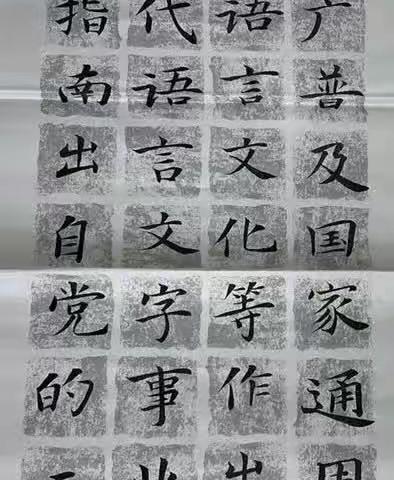 广普及国家通用
语言文化等作出
代语言文字事业
指南出自党的